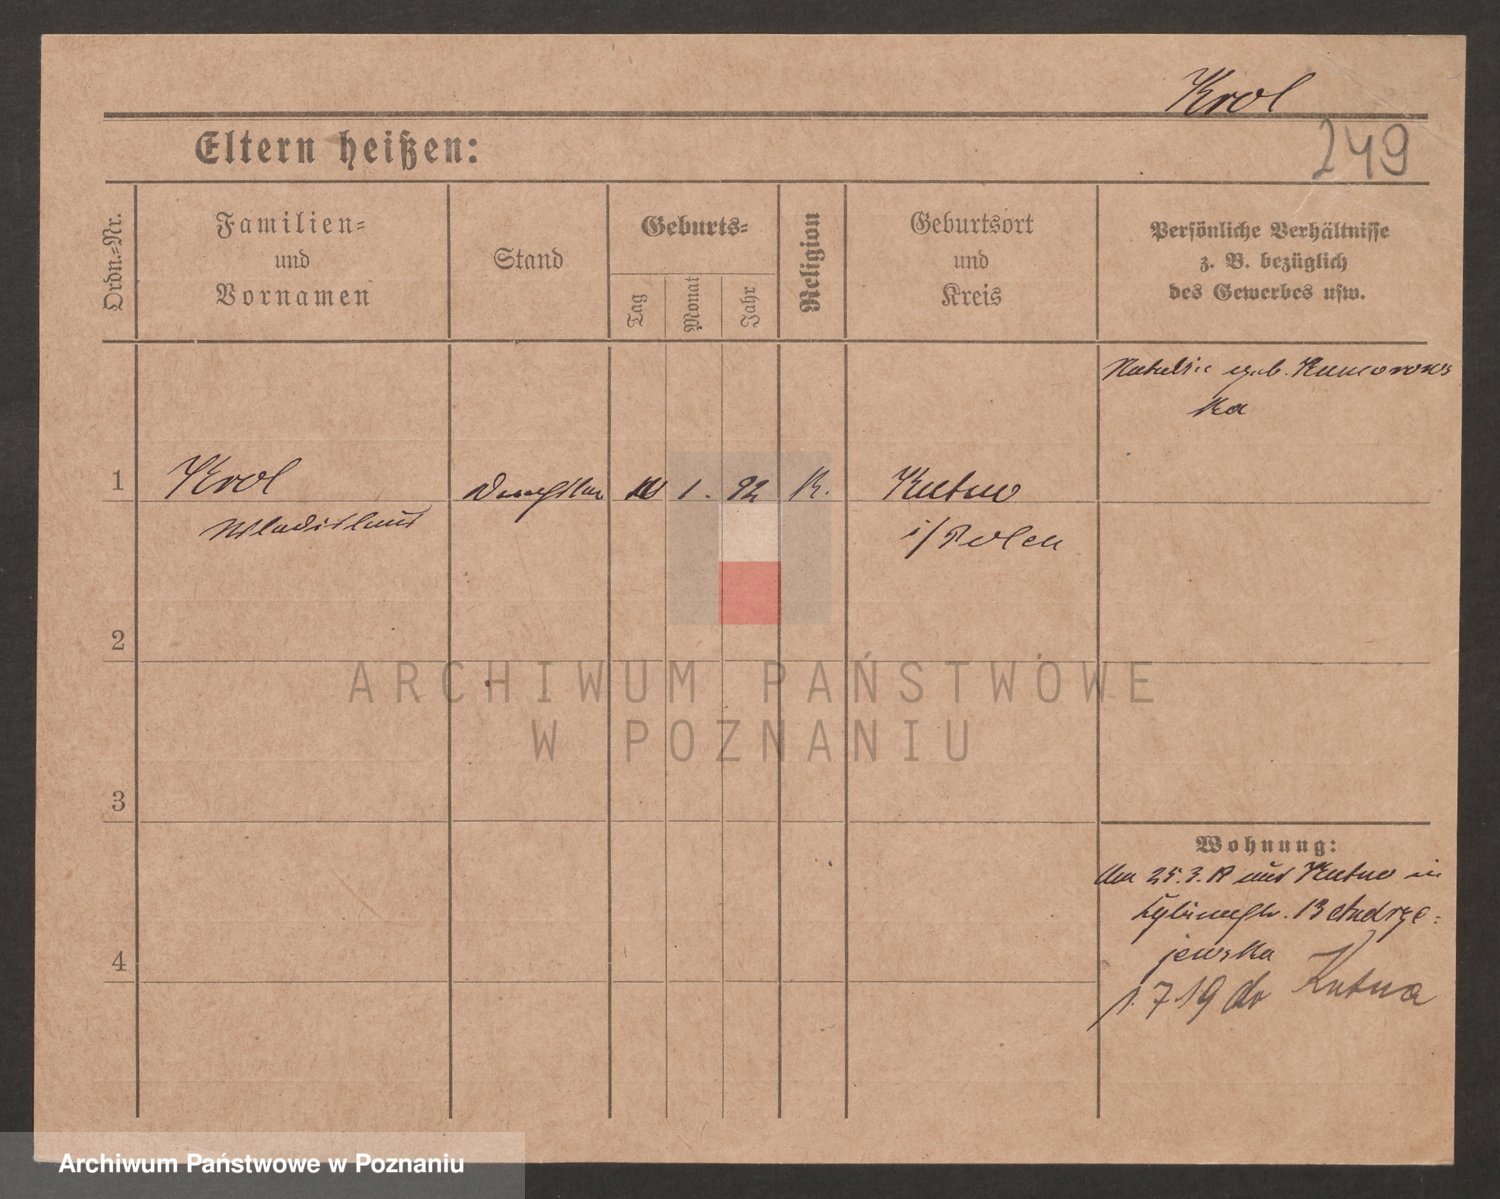 Krol
249
Eltern heißen:
Ordn.-Nr.
Familien-
und
Vornamen
Stand
Geburts-
Tag
Monat
Jahr
Religion
Geburtsort
und
Kreis
Persönliche Verhältnisse
z. B. bezüglich
des Gewerbes usw.
geb. Kumorows
ka
1
Krol
1. 92
K.
Kutno
Wladislaus
i/Polen
2
ARCHIWUM PAŃSTWOWE
W POZNANIU
3
Wohnung:
25.3. aus Kutno in
13 Andrze-
4
jewska
1.7.19 do Kutna
Archiwum Państwowe w Poznaniu